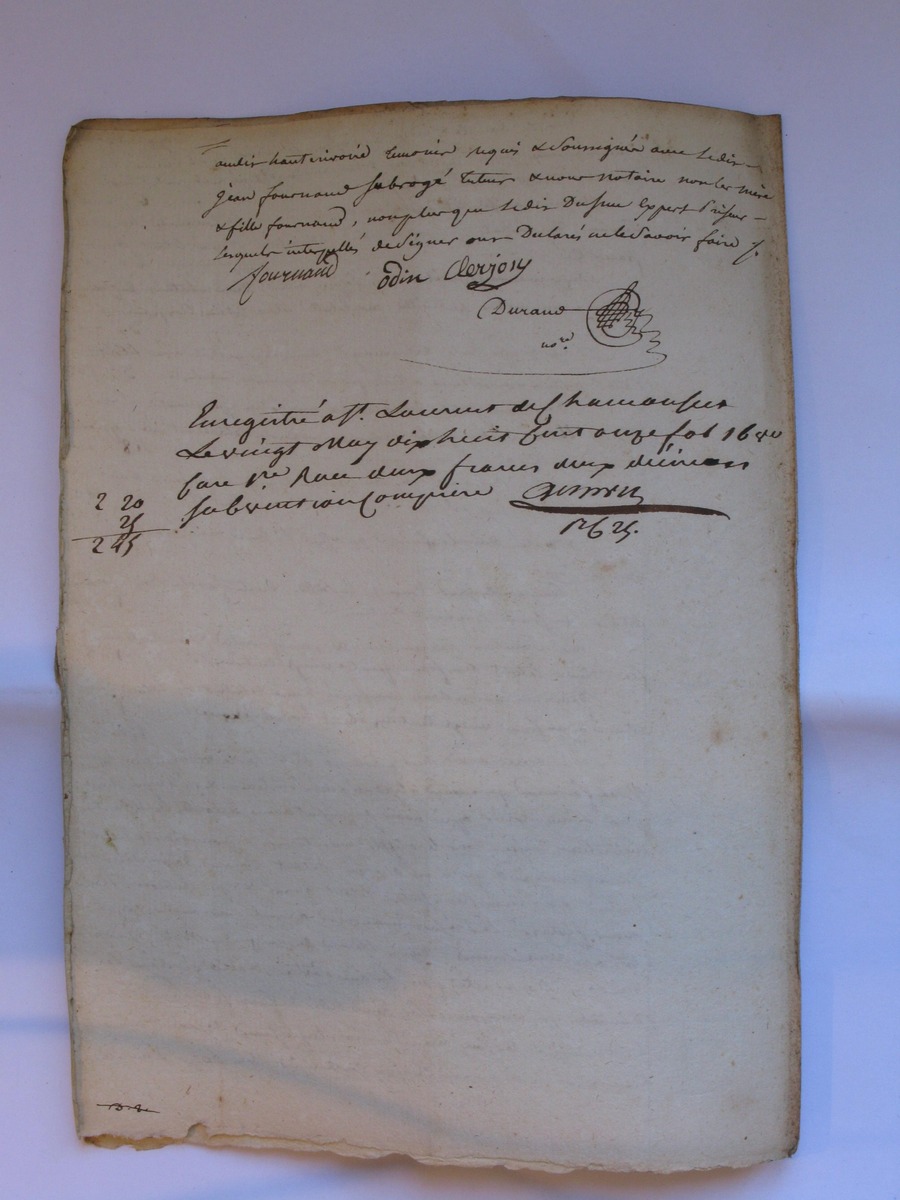 audit haut rivoire temoins requis & soussignés avec ledit
jean fournand subrogé tuteur & nous notaire non les mère
& fille fournand, non plus que ledit expert priseur
lesquels interpellés de signer ont Declarés ne le savoir faire ∕.
fournand odin Clerjon
Durand
no.re
Enregistré a St. Laurent de Chamousset
Le vingt May dix huit Cent onze fol 16
Case 1re Recu deux francs deux décimes
subvention Comprise
2 20
25
2 45